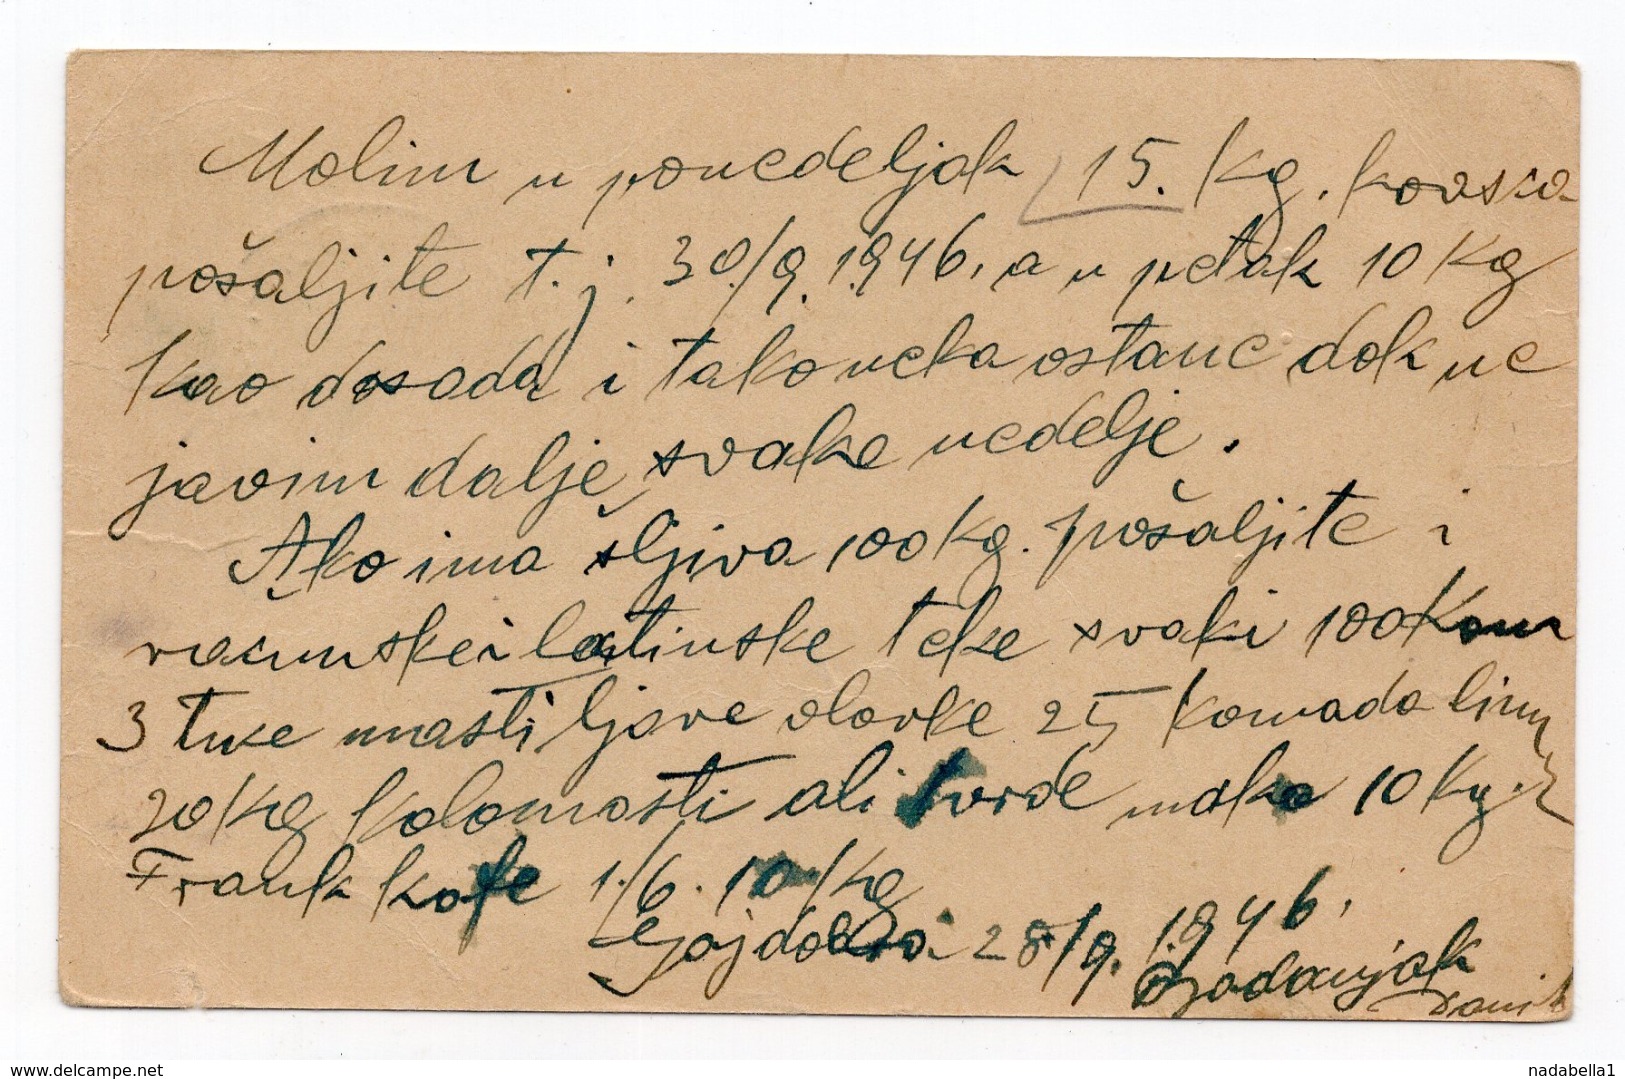 Molim u ponedeljak 15. kg. kvasca
pošaljite t.j. 30/9. 1946. a u petak 10 kg
kao dosada i tako neka ostane dok ne
javim dalje, svake nedelje.
Ako ima šljiva 100 kg. pošaljite i
računske i latinske teke svaki 100 kom
3 tuce mastiljave olovke 25 komada
20 kg kolomasti ali tvrde 10 kg.
Frank kafe 1/6. 10 kg
Gajdobra 28/9. 1946.
www.delcampe.net
nadabella1